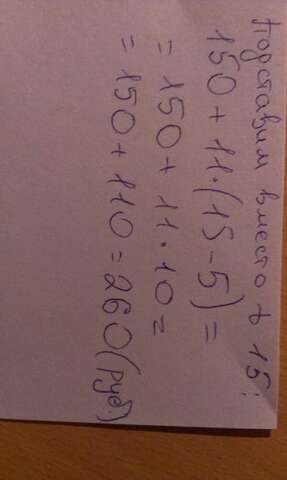 Подставим вместо t 15:
150 + 11·(15-5) =
= 150 + 11·10 =
= 150 + 110 = 260 (руб.)